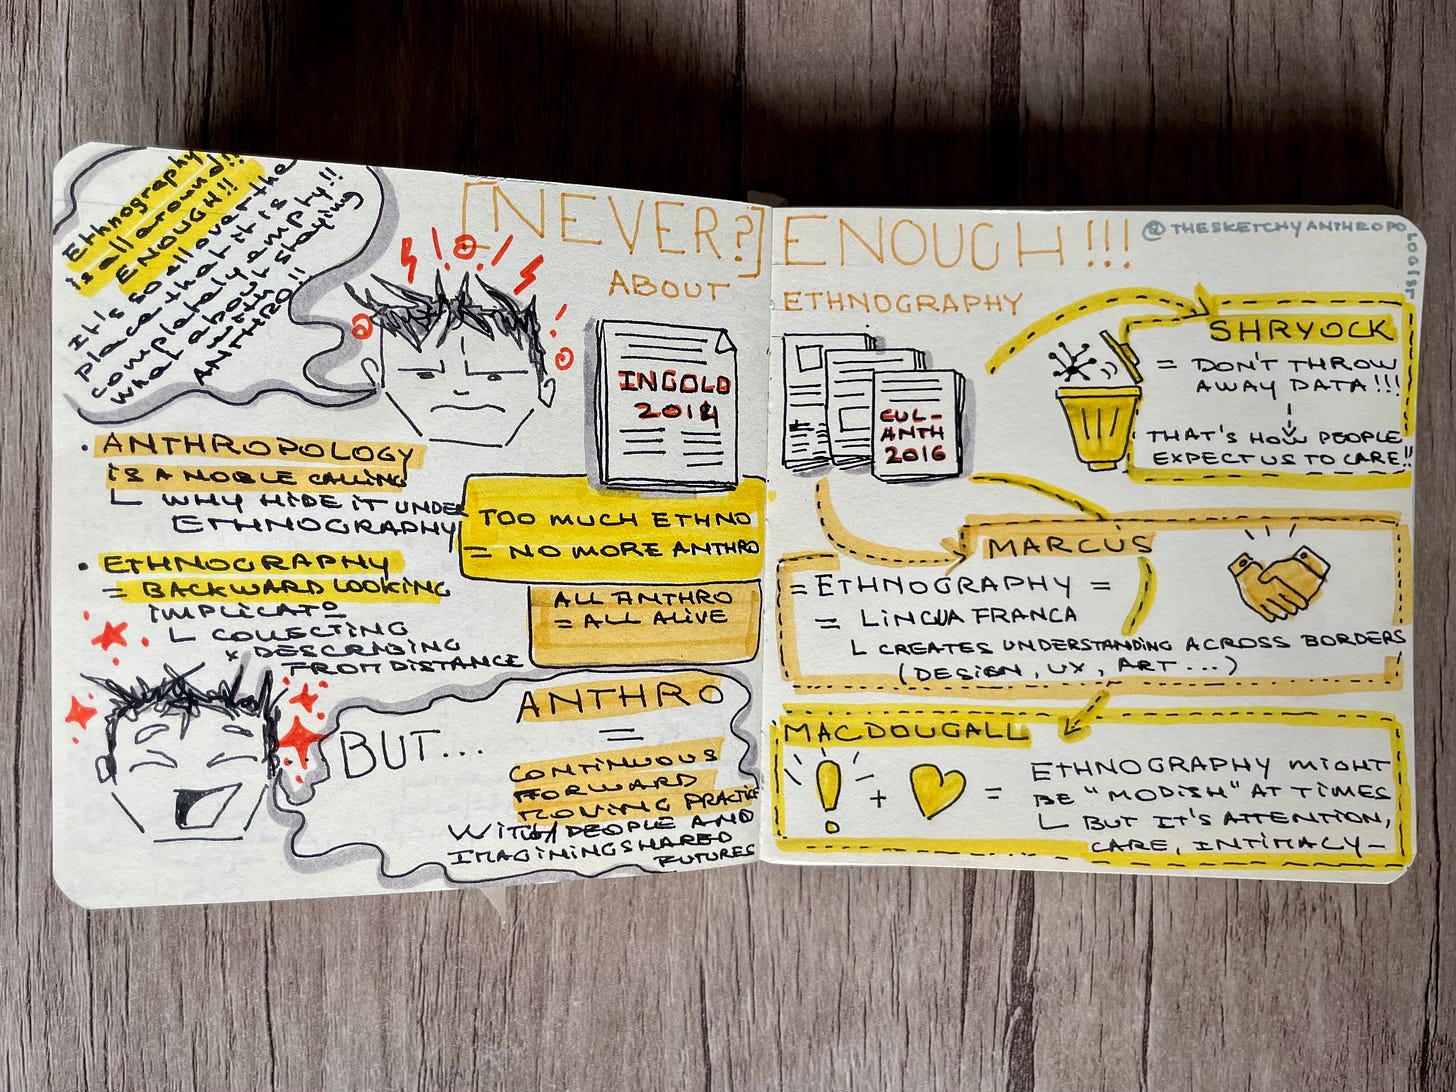 [NEVER?] ENOUGH!!!
ABOUT ETHNOGRAPHY
@THESKETCHYANTHROPOLOGIST
Ethnography
is all around!!
ENOUGH!!
It's so all over the
place that it is
completely empty!!
what about staying
with
ANTHRO!!
INGOLD
2014
• ANTHROPOLOGY
IS A NOBLE CALLING
WHY HIDE IT UNDER
ETHNOGRAPHY
TOO MUCH ETHNO
= NO MORE ANTHRO
ALL ANTHRO
= ALL ALIVE
• ETHNOGRAPHY
= BACKWARD LOOKING
IMPLICATO
COLLECTING
x DESCRIBING
FROM DISTANCE
BUT...
ANTHRO
=
CONTINUOUS
FORWARD
MOVING PRACTICE
WITH PEOPLE AND
IMAGINING SHARED
FUTURES
CUL-
ANTH
2016
SHRYOCK
= DON'T THROW
AWAY DATA!!!
THAT'S HOW PEOPLE
EXPECT US TO CARE!!
MARCUS
= ETHNOGRAPHY =
= LINGUA FRANCA
CREATES UNDERSTANDING ACROSS BORDERS
(DESIGN, UX, ART ...)
MACDOUGALL
! + =
ETHNOGRAPHY MIGHT
BE "MODISH" AT TIMES
BUT IT'S ATTENTION,
CARE, INTIMACY –